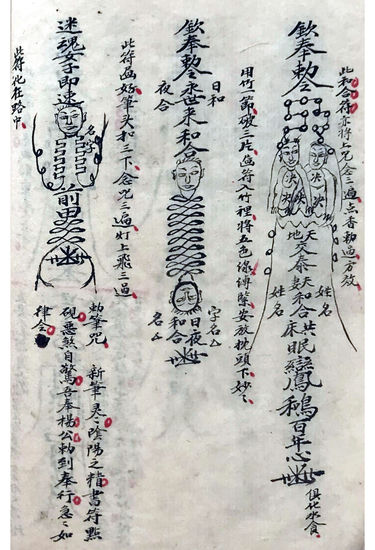 此和合符亦將上咒念三遍点香勅西方放
欽奉勅令
天地交泰
夫妻和合共床眠鸞鳳百年
姓名
姓名
俱化水食
用竹一節破三片画符入竹裡將五色線縛緊安放枕頭下妙々
欽奉勅令永世來和合
日和
夜合
日夜和合
字名
名
此符画好筆头扣三下念咒三遍灯上飛三過
迷魂女子即速
名字
前男
勅筆咒
新筆灵々陰陽之精書符點
硯惡煞自驚吾奉楊公勅到奉行急々如
律令
此符化在路中